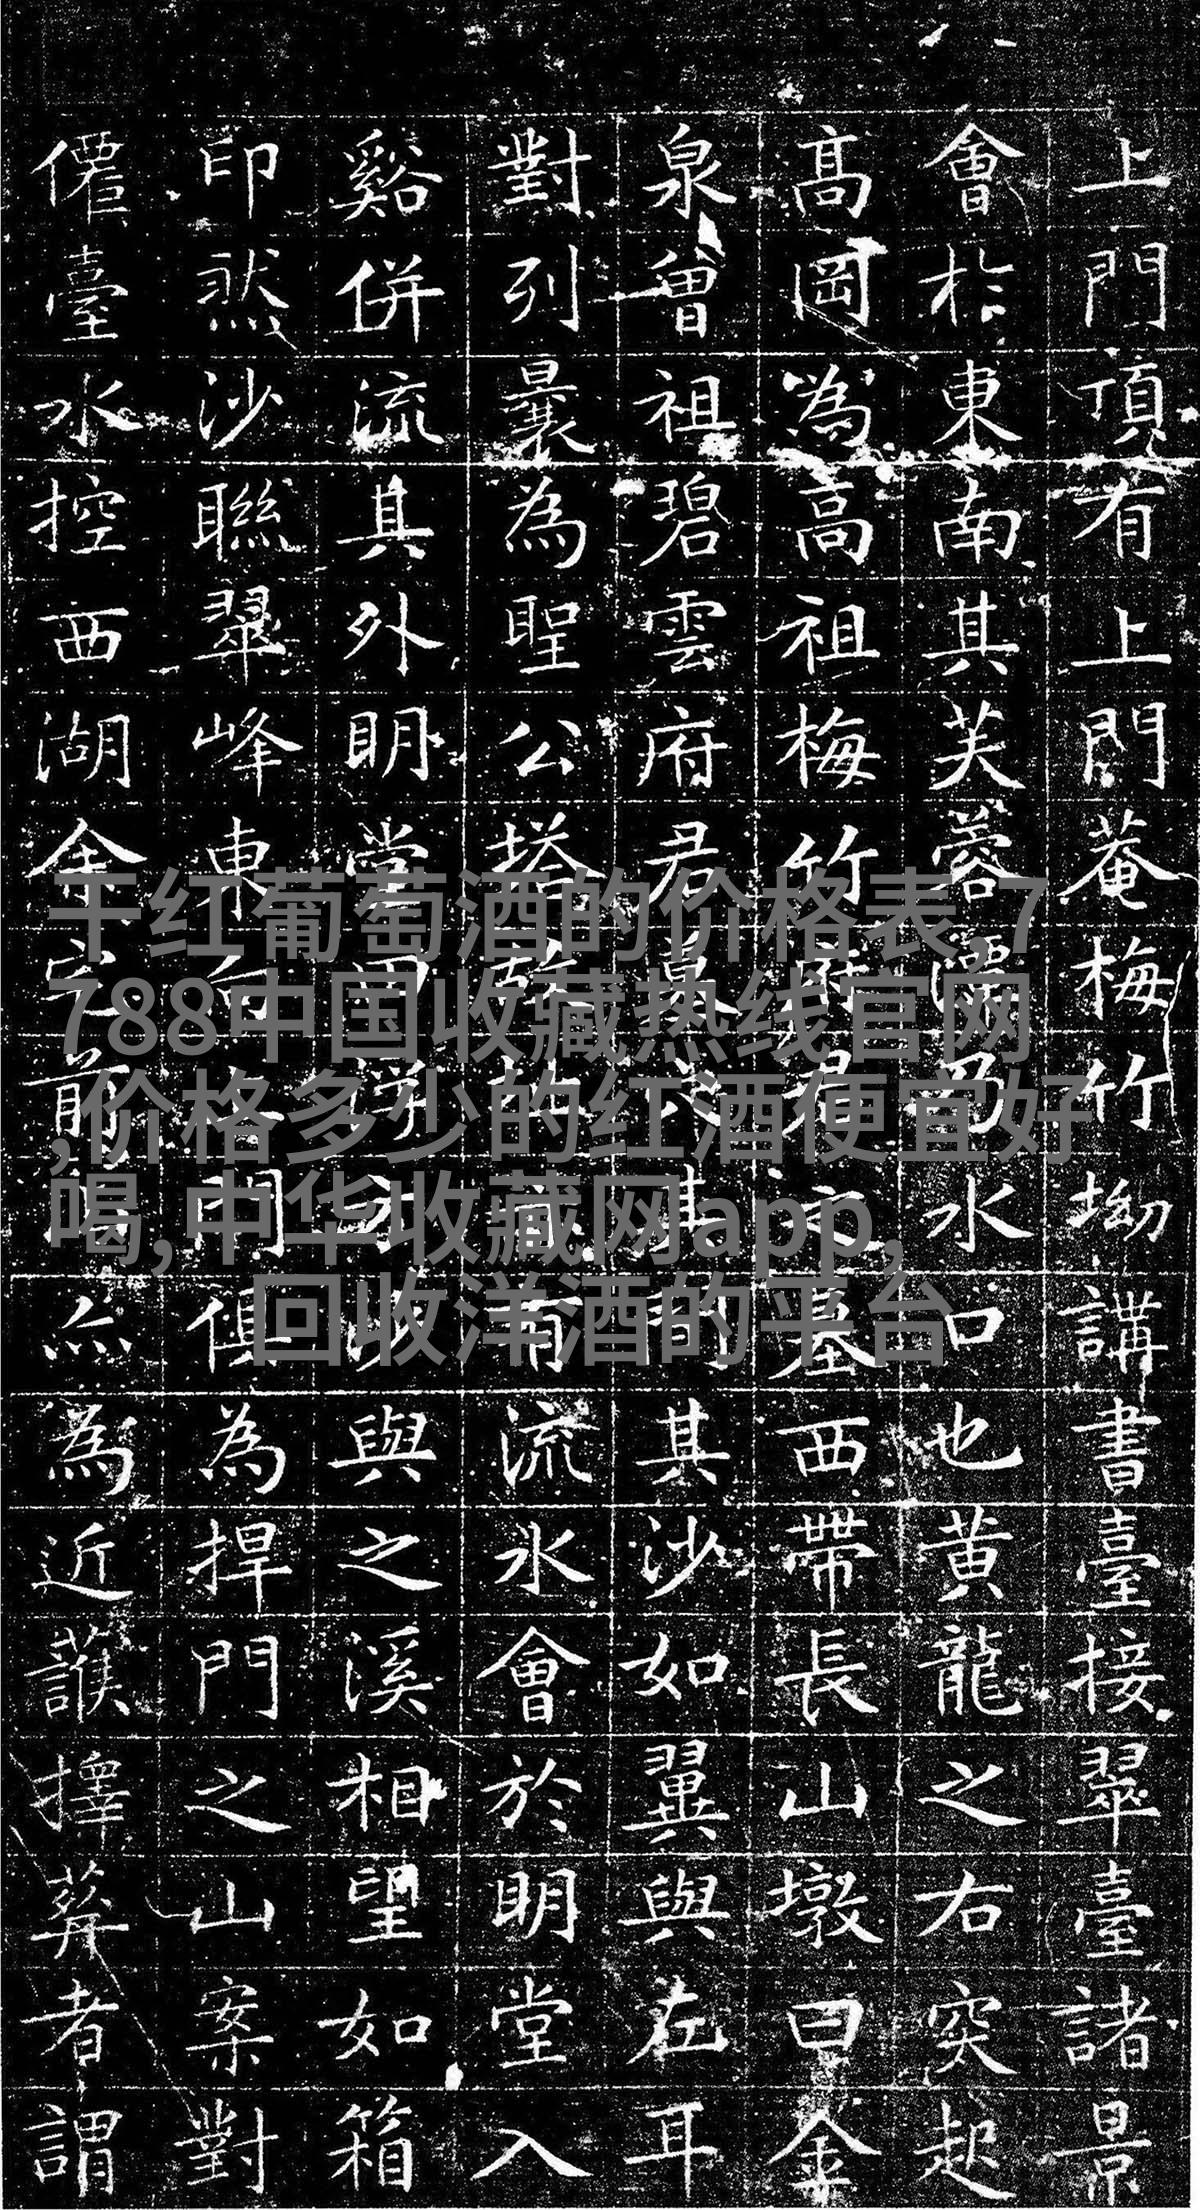 上門頂有上門菴梅竹坳講書臺接翠臺諸景
會於東南其芙蓉水口也黄龍之右突起
高岡為高祖梅竹府君之墓西帶長山墩曰金
泉曾祖碧雲府君墓其沙如翼與左耳
對列曩為聖公塔有流水會於明堂入
谿併流其外明堂與之溪相望如箱
印然沙聯翠峰東石門俱為捍門之山案對
僊臺水控西湖余亦為近蓛擇葬者謂
干红葡萄酒的价格表,7
788中国收藏热线官网
,价格多少的红酒便宜好
喝,中华收藏网app,
回收洋酒的平台